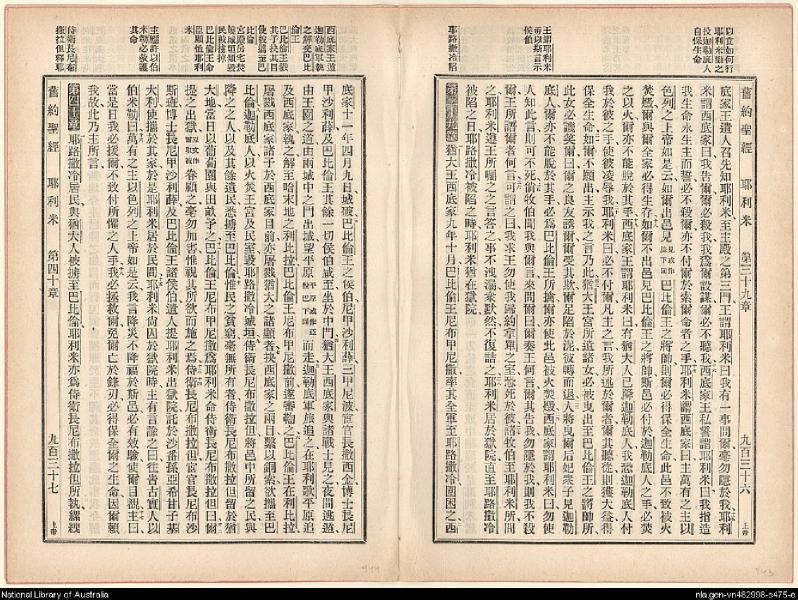 以直如何行
耶利米勸之
投迦勒底人
自保生命
王謂耶利米
毋以斯言示
侯伯
耶路撒冷陷
舊約聖經 耶利米 第三十九章 九百三十六 上帝
底家王遣人召先知耶利米至主殿之第三門王謂耶利米曰我有一事問爾毫勿隱於我耶利
米謂西底家曰我告爾爾必殺我我爲爾設謀爾必不聽我西底家王私誓謂耶利米曰我指造
我生命永生主而誓必不殺爾亦不付爾於索爾命者之手耶利米謂西底家曰主萬有之主以
色列之上帝如是云如爾出邑見巴比倫王之將帥則爾必得保全生命此邑不致被火
焚燬爾與爾全家必得生存如爾不出邑見巴比倫王之將帥斯邑必付於迦勒底人之手必焚
之以火爾亦不能脫於其手西底家王謂耶利米曰有猶大人已降迦勒底人我恐迦勒底人付
我於彼之手使彼凌辱我耶利米曰必不付爾凡主之言我所述於爾者爾其聽從則獲大益得
保全生命如爾不願出主示我之言乃此猶大王宮所遺諸女必被曳出至巴比倫王之將帥所
此女必譏笑爾曰爾之良友誘爾爾受其欺爾足陷於泥彼轉而退人將曳爾后妃衆子見迦勒
底人爾亦不能脫於其手必爲巴比倫王所擒爾亦使此邑被火焚燬西底家謂耶利米曰勿使
人知此言則可不死倘牧伯聞我與爾言來問爾曰爾奏王何言王爾其告我勿隱於我則我不殺
爾王所語爾者何言可謂之曰我求王勿使我歸約拿單之室恐死於彼諸牧伯至耶利米所問
之耶利米遵王所囑之之言答之事不洩漏衆默然不復詰之耶利米居於獄院直至耶路撒冷
被陷之日耶路撒冷被陷之時耶利米猶在獄院
第三十九章 猶大王西底家九年十月巴比倫王尼布甲尼撒率其全軍至耶路撒冷圍困之西
西底家王遁
迦勒底軍執
之解至巴比
倫王
巴比倫王殺
其子抉其目
使被擄至巴
比倫
宮殿房宅焚
燬城垣毀
民被擄掠
巴比倫王命
臣顧恤耶利
米
主應許以伯
米勒必救護
其命
侍衛長尼布
撒拉但釋耶
底家十一年四月九日城破巴比倫王之侯伯尼甲沙利薛三甲尼波宦官長撒西金博士長尼
甲沙利薛及巴比倫王其餘一切侯伯咸至坐於中門猶大王西底家與諸戰士見之夜間逃遁
由王園之道由兩城中之門出城望平原而走迦勒底軍旅追之在耶利歌平原追
及西底家執之解至哈末地之利比拉巴比倫王尼布甲尼撒前遂審鞫之巴比倫王在利比拉
屠戮西底家諸子於西底家目前亦屠戮猶大之諸顯者抉西底家之兩目繫以銅索欲攜至巴
比倫迦勒底人以火焚王宮及民室毀耶路撒冷城垣侍衛長尼布撒拉但將邑中所留之民與
降之之人以及其餘遺民悉擄至巴比倫惟民之貧窮毫無所有者侍衛長尼布撒拉但留於猶
大地當日以葡萄園與田畝予之巴比倫王尼布甲尼撒爲耶利米命侍衛長尼布撒拉但曰爾
提之出獄眷顧之毫勿加害惟視其所欲而施之爲侍衛長尼布撒拉但宦官長尼布沙
斯班博士長尼甲沙利薛及巴比倫王諸侯伯遣人提耶利米出獄院託於沙番孫亞希甘子基
大利使攜於其家於是耶利米居於民間耶利米尚囚於獄院時主有言諭之曰往告古實人以
伯米勒曰萬有之主以色列之上帝如是云我言降災不降福於斯邑必有效驗使爾目覩主曰
當是日我必援爾不致付所懼之人手我必拯救爾免爾亡於鋒刃必得保全爾之生命因爾賴
我故此乃主所言
第四十章 耶路撒冷居民與猶大人被擄至巴比倫耶利米亦爲侍衛長尼布撒拉但所執縲絏
舊約聖經 耶利米 第四十章 九百三十七 上帝
National Library of Australia
nla.gen-vn482998-s475-e